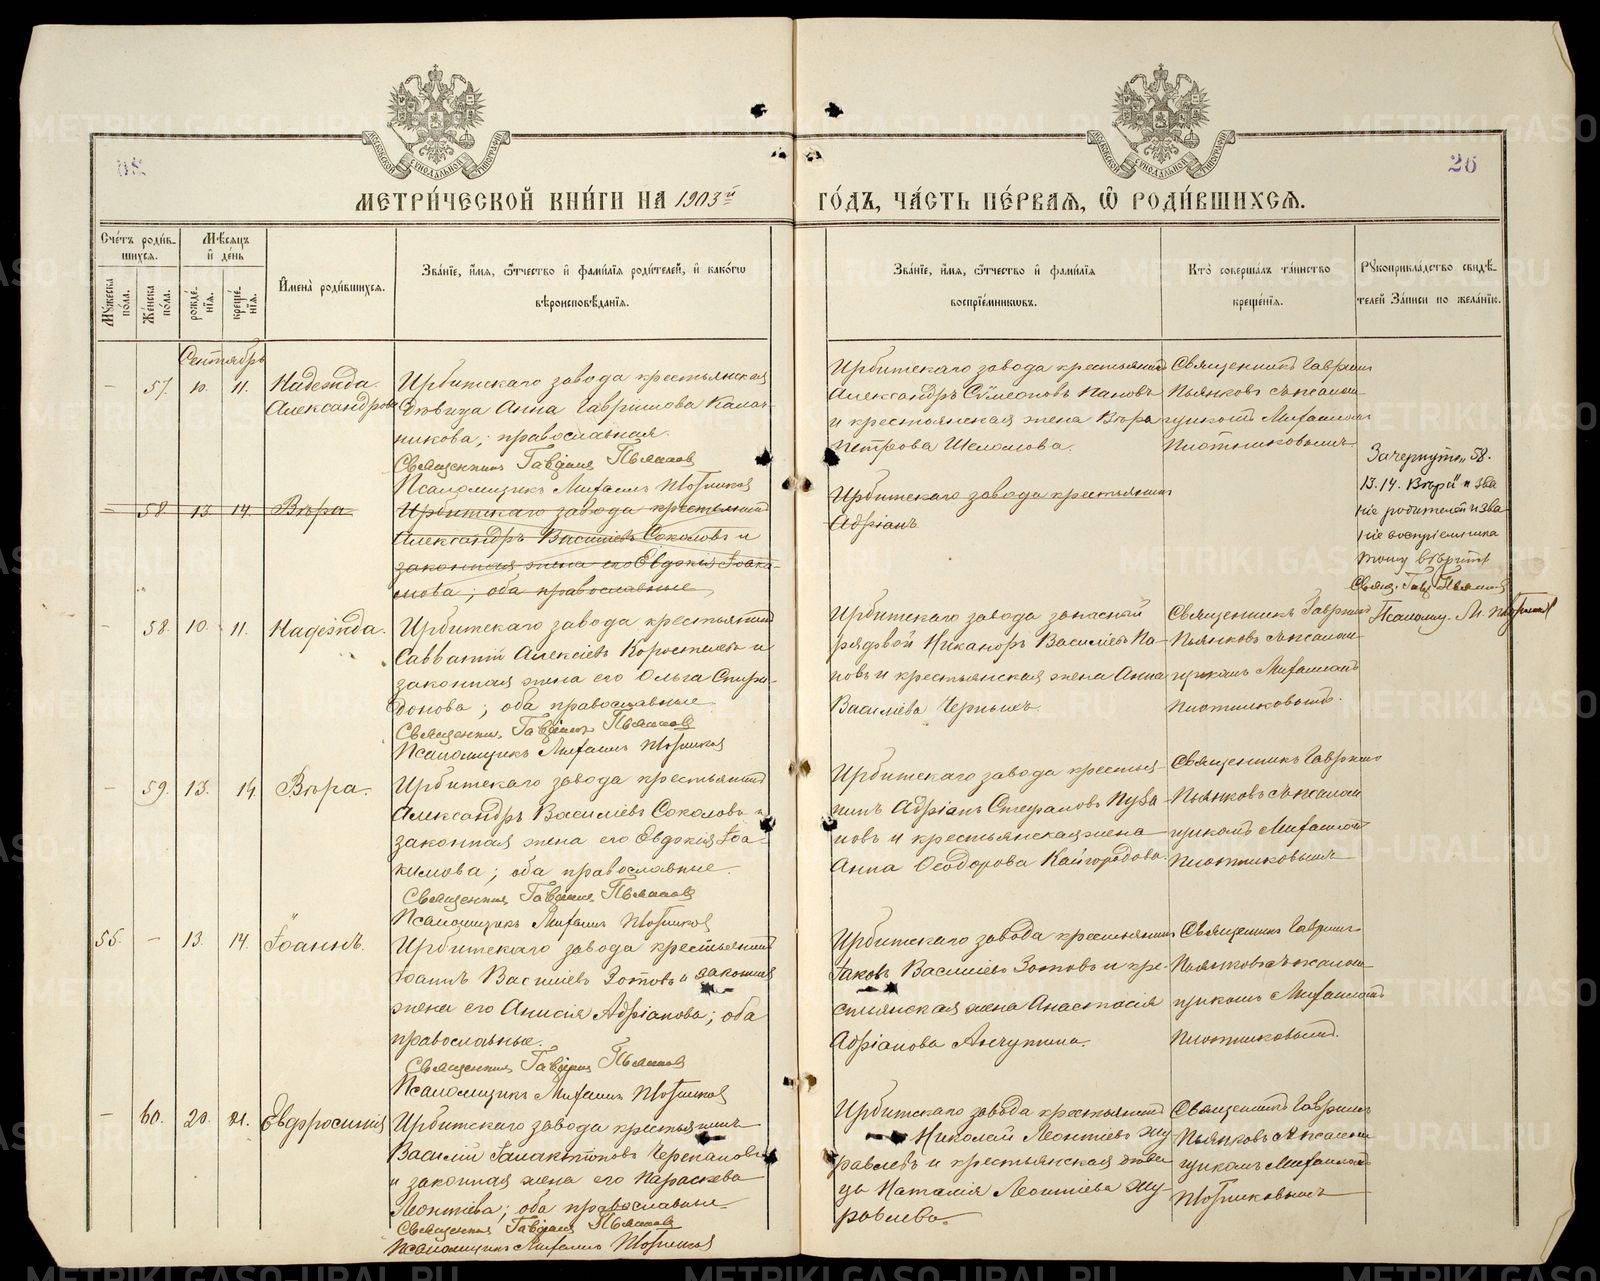 МЕТРИ́ЧЕСКОЙ КНИ́ГИ НА 1903й
ГО́ДЪ, ЧА́СТЬ ПЕ́РВАЯ, Ѡ РОДИ́ВШИХСЯ.
26
Сче́тъ роди́в-
шихся.
Му́жеска
по́ла.
Же́нска
по́ла.
Мѣ́сяцъ
и́ де́нь
рожде́-
нїя.
креще́-
нїя.
И́мена̀ роди́вшихся.
Зва́нїе, и́мя, ѻ́тчество и́ фами́лїя роди́телей, и́ како́гѡ
вѣроисповѣ́данїя.
Зва́нїе, и́мя, ѻ́тчество и́ фами́лїя
воспрїе́мниковъ.
Кто̀ соверша́лъ та́инство
креще́нїя.
Рꙋкоприкла́дство свидѣ́-
телей за́писи по жела́нїю.
Сентябрь
— 57. 10. 11. Надежда
Александрова
Ирбитскаго завода крестьянская
дѣвица Анна Гавріилова Калач-
никова; православная.
Священникъ Гавріилъ Пьянковъ
Псаломщикъ Михаилъ Плотников
Ирбитскаго завода крестьянинъ
Александръ Сѵмеоновъ Пановъ
и крестьянская жена Вѣра
Петрова Шеломова.
Священникъ Гавріилъ
Пьянковъ съ псалом-
щикомъ Михаиломъ
Плотниковымъ
— 58 13. 14. Вѣра
Ирбитскаго завода крестьянинъ
Александръ Васильевъ Соколовъ и
законная жена его Евдокія Іоаки-
мова; оба православные
Ирбитскаго завода крестьянинъ
Адріанъ
Зачеркнуто „58.
13. 14. Вѣра" и зва
ніе родителей и зва
ніе воспріемника
тому вѣрить
Свящ. Гавр. Пьянков
Псаломщ. М. Плотников
— 58. 10. 11. Надежда.
Ирбитскаго завода крестьянинъ
Савватій Алексіевъ Коростелевъ и
законная жена его Ольга Спири-
донова; оба православные
Священникъ Гавріилъ Пьянковъ
Псаломщикъ Михаилъ Плотников
Ирбитскаго завода запасный
рядовой Никаноръ Васильевъ Па-
новъ и крестьянская жена Анна
Васильева Черныхъ.
Священникъ Гавріилъ
Пьянковъ съ псалом-
щикомъ Михаиломъ
Плотниковымъ.
— 59. 13. 14. Вѣра.
Ирбитскаго завода крестьянинъ
Александръ Васильевъ Соколовъ и
законная жена его Евдокія Іоа-
кимова; оба православные.
Священникъ Гавріилъ Пьянковъ
Псаломщикъ Михаилъ Плотников
Ирбитскаго завода крестья-
нинъ Адріанъ Стефановъ
новъ и крестьянская жена
Анна Ѳеодорова Кайгородова.
Священникъ Гавріилъ
Пьянковъ съ псалом-
щикомъ Михаиломъ
Плотниковымъ
55. — 13. 14. Іоаннъ.
Ирбитскаго завода крестьянинъ
Іоаннъ Васильевъ Зотовъ и законная
жена его Анисія Адріанова; оба
православные.
Священникъ Гавріилъ Пьянковъ
Псаломщикъ Михаилъ Плотников
Ирбитскаго завода крестьянинъ
Іаковъ Васильевъ Зотовъ и кре-
стьянская жена Анастасія
Адріанова Анчутина.
Священникъ Гавріилъ
Пьянковъ съ псалом-
щикомъ Михаиломъ
Плотниковымъ.
— 60. 20. 21. Евфросинія
Ирбитскаго завода крестьянинъ
Василій Галактіоновъ Черепановъ
и законная жена его Параскева
Леонтіева; оба православные
Священникъ Гавріилъ Пьянковъ
Псаломщикъ Михаилъ Плотников
Ирбитскаго завода крестьянинъ
Николай Леонтіевъ Жу
равлевъ и крестьянская дѣви
ца Наталія Леонтіева Жу
равлева.
Священникъ Гавріилъ
Пьянковъ съ псалом
щикомъ Михаиломъ
Плотниковымъ
METRIKI.GASO-URAL.RU